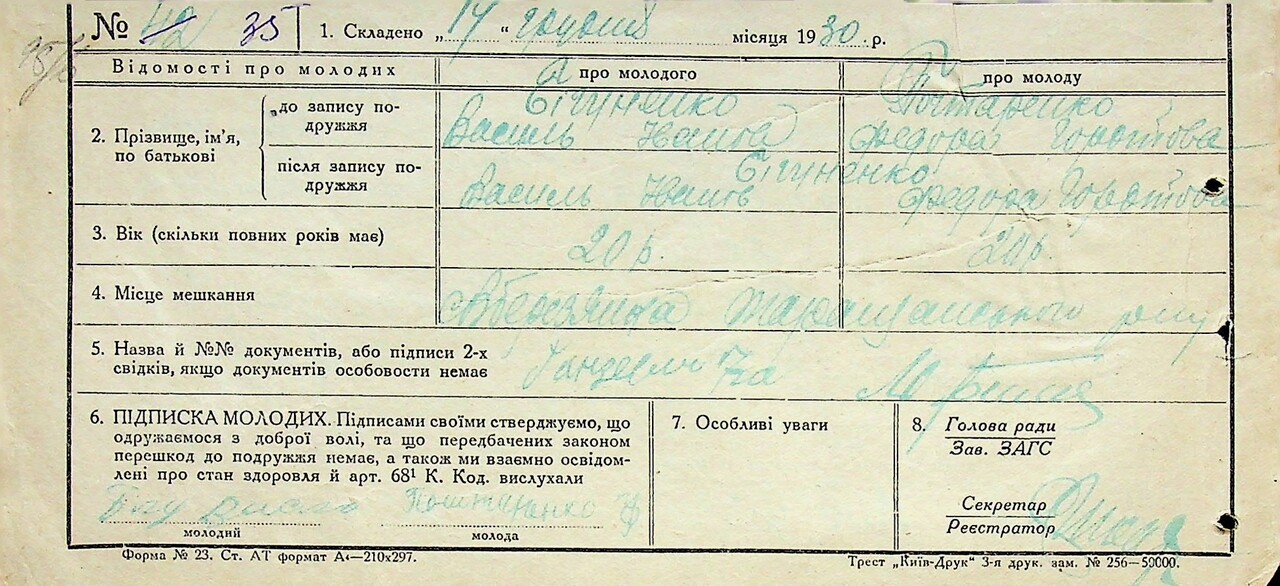 № 42 35 1. Складено „14“ грудня місяця 1930 р.
Відомості про молодих про молодого про молоду
2. Прізвище, ім’я, по батькові
до запису подружжя
Сігуненко Поштаренко
Василь Іванов Федора
після запису подружжя
Сігуненко
Василь Іванів Федора
3. Вік (скільки повних років має) 20 р. 20 р.
4. Місце мешкання Таращанського
5. Назва й №№ документів, або підписи 2-х
свідків, якщо документів особовости немає
6. ПІДПИСКА МОЛОДИХ. Підписами своїми стверджуємо, що
одружаємося з доброї волі, та що передбачених законом
перешкод до подружжя немає, а також ми взаємно освідом-
лені про стан здоров'я й арт. 68¹ К. Код. вислухали
Поштаренко
молодий молода
7. Особливі уваги
8. Голова ради
Зав. ЗАГС
Секретар
Реєстратор
Форма № 23. Ст. АТ формат А₄—210х297. Трест „Київ-Друк“ 3-я друк. зам. № 256—50000.